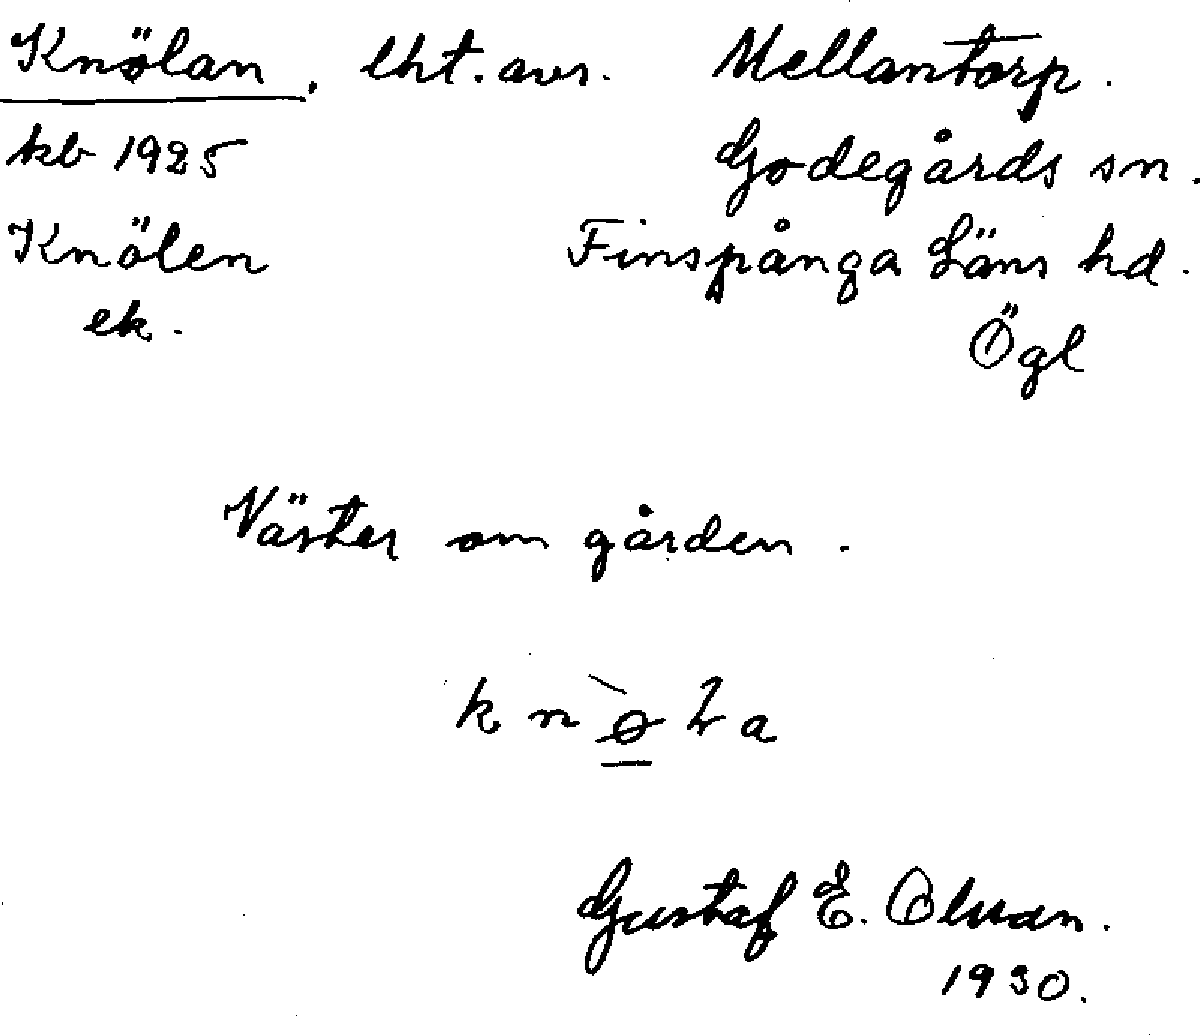 Knölan, lht. avs. Mellantorp.
kb 1925 Godegårds sn.
Knölen Finspånga Läns hd.
ek. Ögl
Väster om gården.
Gustaf E. Olsson.
1930.